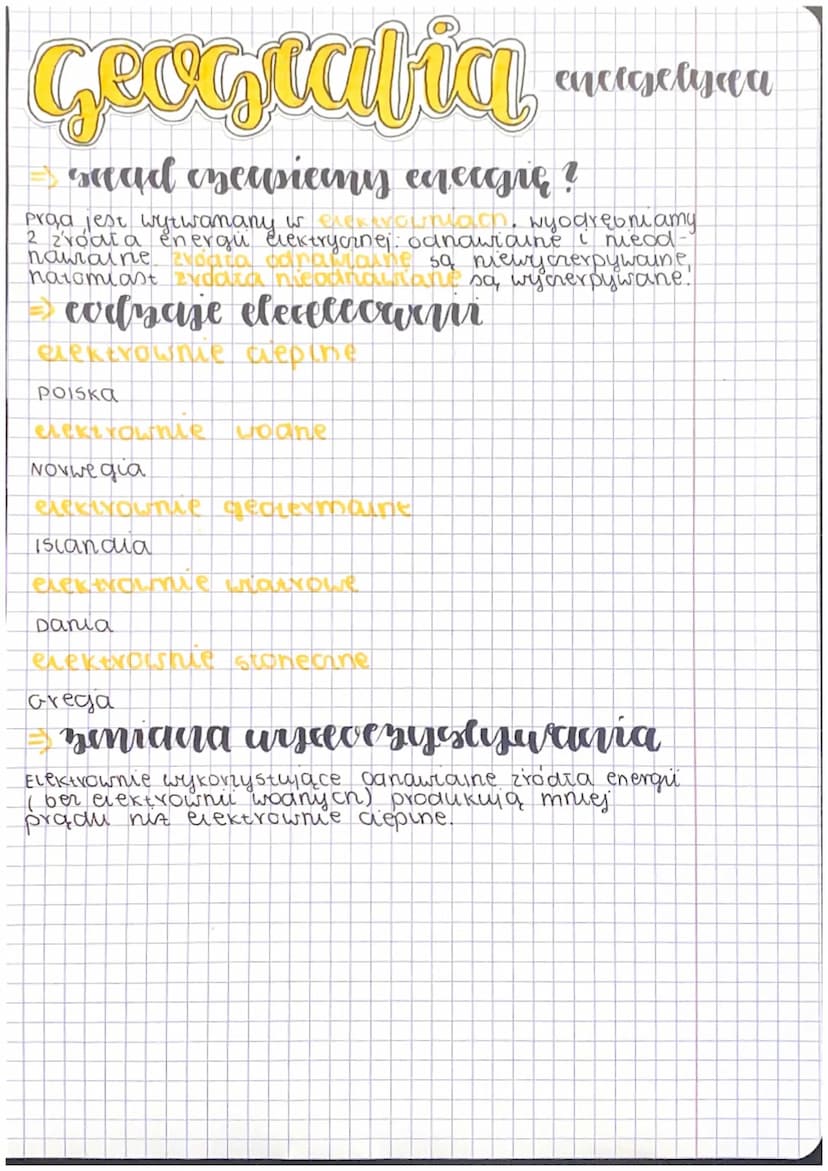 Geografia energetyka
⇒ skąd czerpiemy energię?
Prąd jest wytwarzany w elektrowniach. wyodrębniamy
2 źródła energii elektrycznej: odnawialne i nieod-
nawialne. źródła odnawialne są niewyczerpywalne,
natomiast źródła nieodnawialne są wyczerpywane.
⇒ rodzaje elektrowni
elektrownie cieplne
Polska
elektrownie wodne
Norwegia
elektrownie geotermalne
Islandia
elektrownie wiatrowe
Dania
elektrownie słoneczne
Grecja
⇒ zmiana wykorzystywania
Elektrownie wykorzystujące odnawialne źródła energii
(bez elektrowni wodnych) produkują mniej
prądu niż elektrownie cieplne.